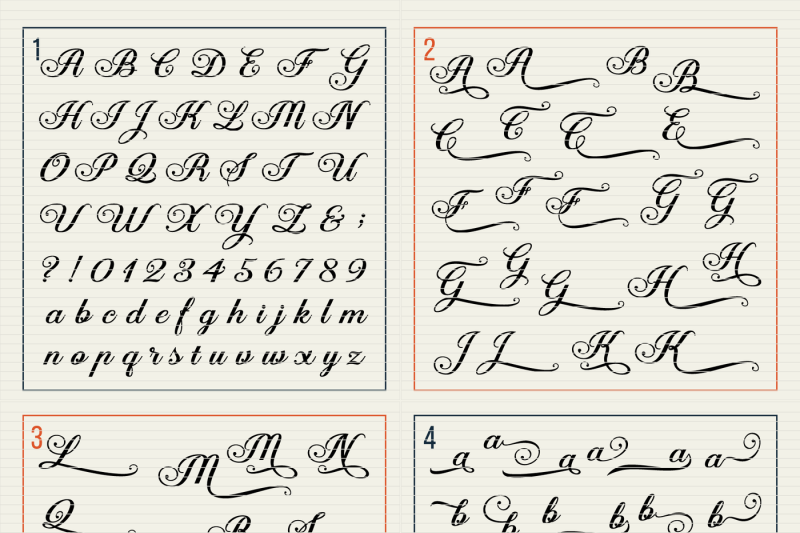 1
A B C D E F G
H I J K L M N
O P Q R S T U
V W X Y Z & ;
? ! 0 1 2 3 4 5 6 7 8 9
a b c d e f g h i j k l m
n o p q r s t u v w x y z
2
A A B B
C C C E
F F F G G
G G G H H
J J K K
3
L M M N
Q R S
4
a a a a a a
b b b b b b